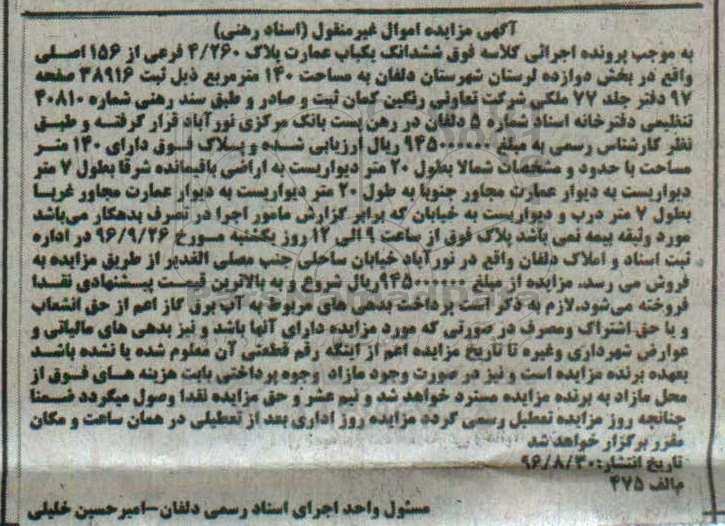 آگهی مزایده اموال غیرمنقول (اسناد رهنی)
به موجب پرونده اجرائی کلاسه فوق ششدانگ یکباب عمارت پلاک ۴/۲۶۰ فرعی از ۱۵۶ اصلی
واقع در بخش دوازده لرستان شهرستان دلفان به مساحت ۱۴۰ مترمربع ذیل ثبت ۳۸۹۱۶ صفحه
۹۷ دفتر جلد ۷۷ ملکی شرکت تعاونی رنگین کمان ثبت و صادر و طبق سند رهنی شماره ۴۰۸۱۰
تنظیمی دفترخانه اسناد شماره ۵ دلفان در رهن پست بانک مرکزی نورآباد قرار گرفته و طبق
نظر کارشناس رسمی به مبلغ ۹۴۵۰۰۰۰۰۰ ریال ارزیابی شده و پلاک فوق دارای ۱۴۰ متر
مساحت با حدود و مشخصات شمالا بطول ۲۰ متر دیواریست به اراضی باقیمانده شرقا بطول ۷ متر
دیواریست به دیوار عمارت مجاور جنوبا به طول ۲۰ متر دیواریست به دیوار عمارت مجاور غربا
بطول ۷ متر درب و دیواریست به خیابان که برابر گزارش مامور اجرا در تصرف بدهکار می‌باشد
مورد وثیقه بیمه نمی باشد پلاک فوق از ساعت ۹ الی ۱۲ روز یکشنبه مورخ ۹۶/۹/۲۶ در اداره
ثبت اسناد و املاک دلفان واقع در نورآباد خیابان ساحلی جنب مصلی الغدیر از طریق مزایده به
فروش می رسد. مزایده از مبلغ ۹۴۵۰۰۰۰۰۰ریال شروع و به بالاترین قیمت پیشنهادی نقدا
فروخته می‌شود.لازم به ذکر است پرداخت بدهی های مربوط به آب برق گاز اعم از حق انشعاب
و یا حق اشتراک ومصرف در صورتی که مورد مزایده دارای آنها باشد و نیز بدهی های مالیاتی و
عوارض شهرداری وغیره تا تاریخ مزایده اعم از اینکه رقم قطعی آن معلوم شده یا نشده باشد
بعهده برنده مزایده است و نیز در صورت وجود مازاد وجوه پرداختی بابت هزینه های فوق از
محل مازاد به برنده مزایده مسترد خواهد شد و نیم عشر و حق مزایده نقدا وصول میگردد ضمنا
چنانچه روز مزایده تعطیل رسمی گردد مزایده روز اداری بعد از تعطیلی در همان ساعت و مکان
مقرر برگزار خواهد شد
تاریخ انتشار:۹۶/۸/۳۰
م الف ۴۷۵
مسئول واحد اجرای اسناد رسمی دلفان-امیرحسین خلیلی